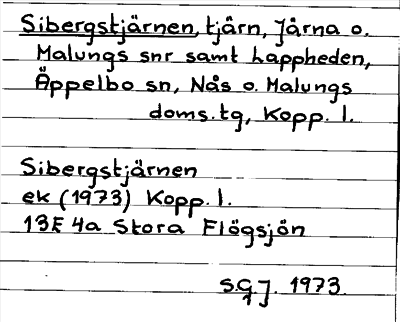 Sibergstjärnen, tjärn, Järna o.
Malungs snr samt Lappheden,
Äppelbo sn, Nås o. Malungs
doms.tg, Kopp. l.
Sibergstjärnen
ek (1973) Kopp. l.
13E 4a Stora Flögsjön
S.G.J. 1973